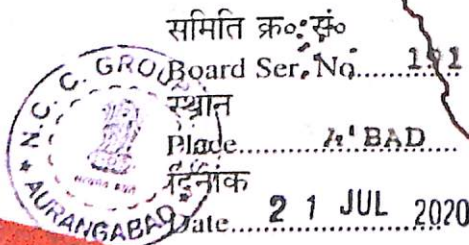 समिति क्र०:सं०
Board Ser. No......191
स्थान
Place.........A'BAD
दिनांक
Date....2 1 JUL 2020
N.C.C. GROUP
AURANGABAD